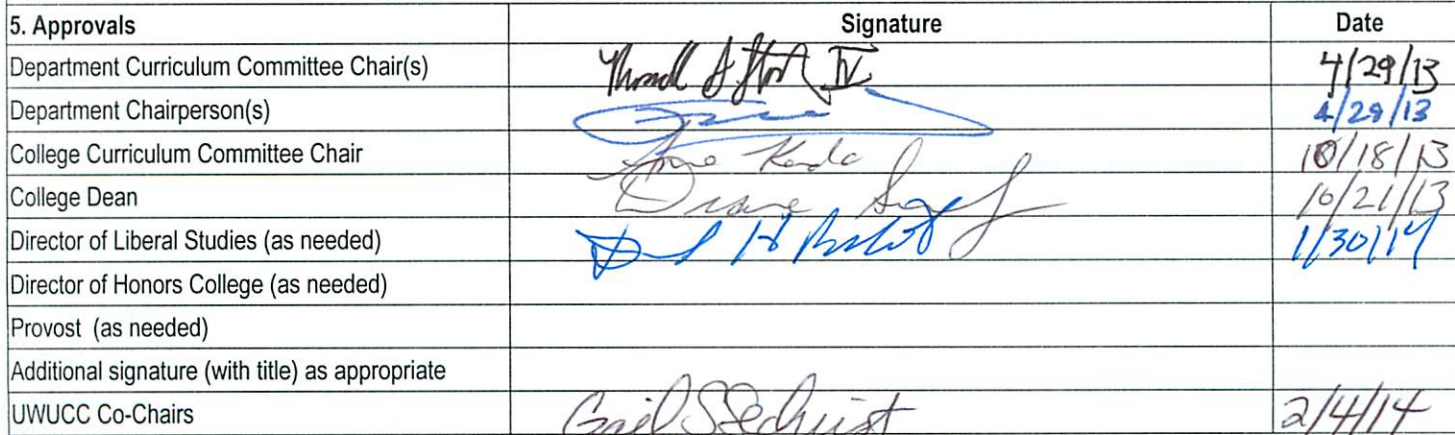 5. Approvals Signature Date
Department Curriculum Committee Chair(s) IV 4/29/13
Department Chairperson(s) 4/29/13
College Curriculum Committee Chair 10/18/13
College Dean Diane 10/21/13
Director of Liberal Studies (as needed) 1/30/14
Director of Honors College (as needed)
Provost (as needed)
Additional signature (with title) as appropriate
UWUCC Co-Chairs Gail Sechrist 2/4/14